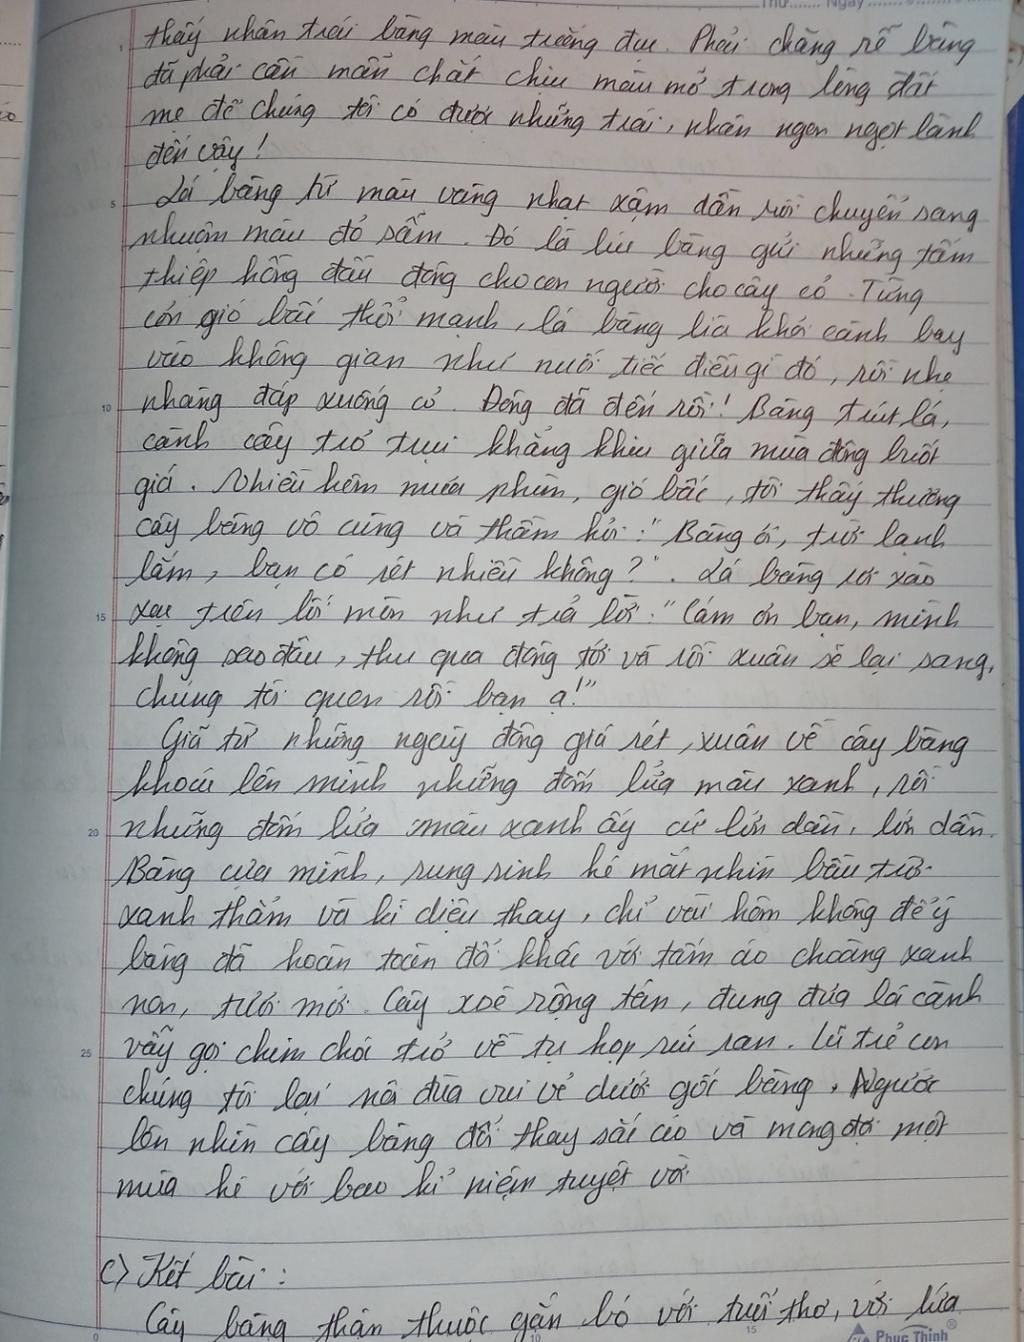 Thứ....... Ngày.......
thấy nhân trái bàng màu trắng đục. Phải chăng rễ bàng
đã phải cần mẫn chắt chiu màu mỡ trong lòng đất
mẹ để chúng tôi có được những trái, nhân ngon ngọt lành
đến vậy!
5 Lá bàng từ màu vàng nhạt xậm dần rồi chuyển sang
nhuộm màu đỏ sẫm. Đó là lúc bàng gửi những tấm
thiệp hồng đầu đông cho con người cho cây cỏ. Từng
cơn gió bấc thổi mạnh, lá bàng lìa khỏi cành bay
vào không gian như nuối tiếc điều gì đó, rồi nhẹ
10 nhàng đáp xuống cỏ. Đông đã đến rồi! Bàng trút lá,
cành cây trơ trụi khẳng khiu giữa mùa đông buốt
giá. Nhiều hôm mưa phùn, gió bấc, tôi thấy thương
cây bàng vô cùng và thầm hỏi: "Bàng ơi, trời lạnh
lắm, bạn có rét nhiều không?". Lá bàng rơi xào
15 xạc trên lối mòn như trả lời: "Cảm ơn bạn, mình
không sao đâu, thu qua đông tới và rồi xuân sẽ lại sang,
chúng tôi quen rồi bạn ạ!"
Giã từ những ngày đông giá rét, xuân về cây bàng
khoác lên mình những đốm lửa màu xanh, rồi
20 những đốm lửa màu xanh ấy cứ lớn dần, lớn dần.
Bàng cựa mình, rung rinh hé mắt nhìn bầu trời
xanh thẳm và kì diệu thay, chỉ vài hôm không để ý
bàng đã hoàn toàn đổi khác với tấm áo choàng xanh
non, tươi mới. Cây xoè rộng tán, đung đưa lá cành
25 vẫy gọi chim chóc trở về tụ họp ríu ran. Lũ trẻ con
chúng tôi lại nô đùa vui vẻ dưới gốc bàng. Ngước
lên nhìn cây bàng đổi thay sắc áo và mong đợi một
mùa hè với bao kỉ niệm tuyệt vời
c) Kết bài:
Cây bàng thân thuộc gắn bó với tuổi thơ, với lứa
0 10 15 Phuc Thinh®